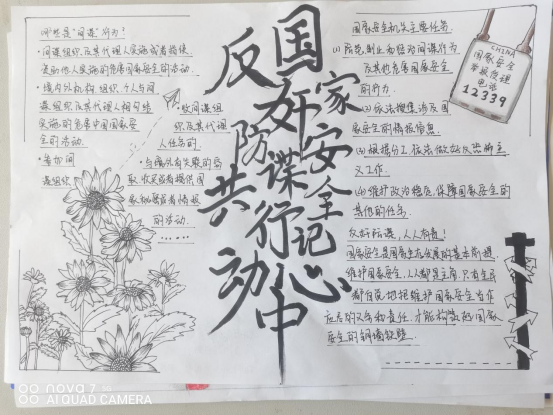 哪些是“间谍”行为？
·间谍组织及其代理人实施或者指使、
资助他人实施的危害国家安全的活动.
·境内外机构、组织、个人与间
谍组织及其代理人相勾结
实施的危害中国国家安
全的活动.
·参加间
谍组织
间谍组
织及其代理
人任务的
取、收买或者提供国
家秘密或者情报
的活动.
……
国家安全记心中
防奸谍行
反
共
动
国家安全机关主要任务
(1) 防范、制止和惩治间谍行为
及其他危害国家安全
的行为.
(2) 依法搜集涉及国
家安全的情报信息.
(3) 根据分工依法做好反恐怖主
义工作.
(4) 维护政治稳定,保障国家安全的
其他的任务.
反奸防谍,人人有责!
国家安全是国家生存发展的基本前提.
维护国家安全,人人都是主角.只有全民
都自觉地把维护国家安全当作
应尽的义务和责任,才能构筑起国家
安全的铜墙铁壁.
CHINA
国家安全
举报受理
电话
12339
nova 7
AI QUAD CAMERA